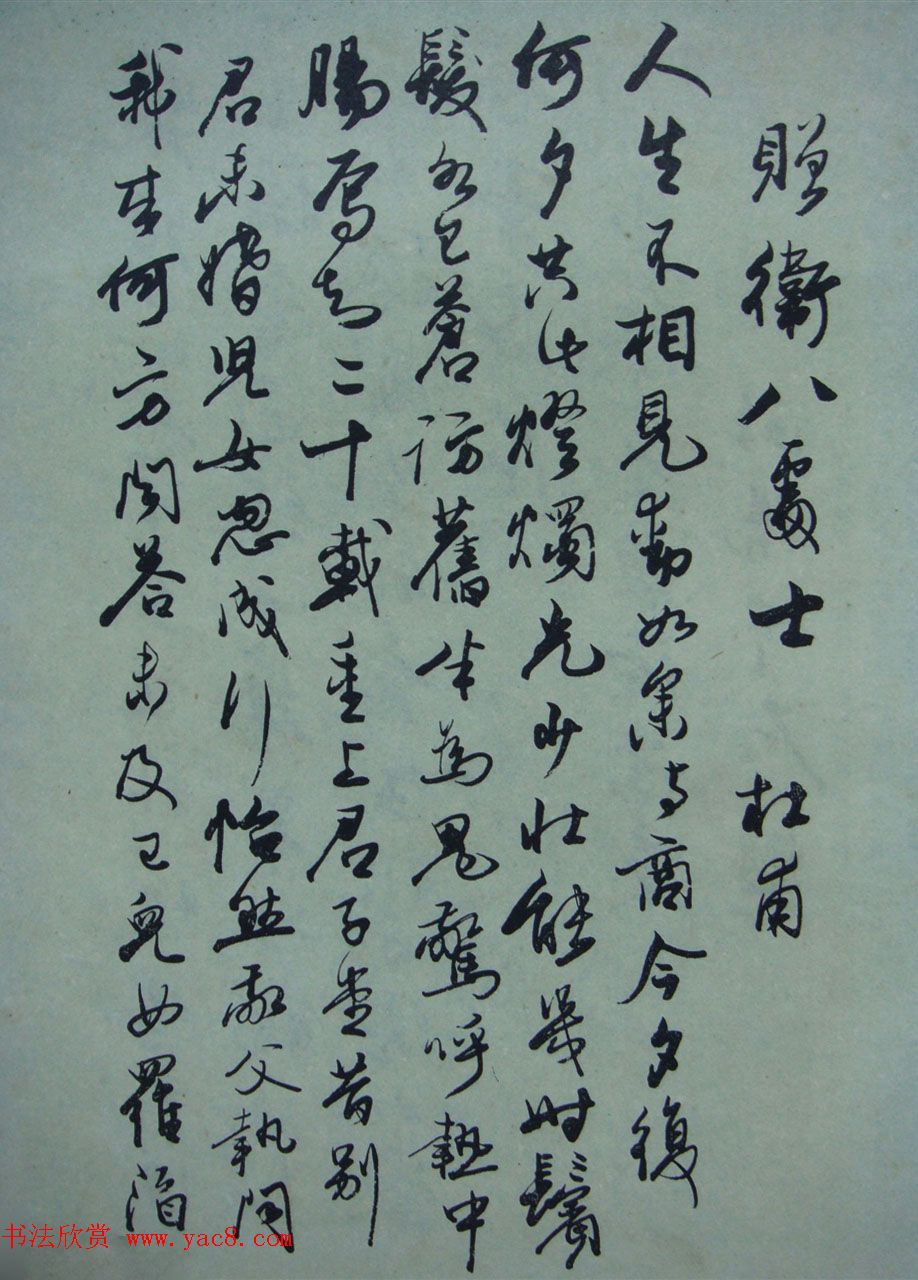 贈衛八處士 杜甫
人生不相見動如參与商今夕復
何夕共此燈燭光少壯能幾時鬢
髮各已蒼訪舊半為鬼驚呼熱中
腸焉知二十載重上君子堂昔別
君未婚兒女忽成行怡然敬父執問
我來何方問答未及已兒女羅酒
书法欣赏 www.yac8.com